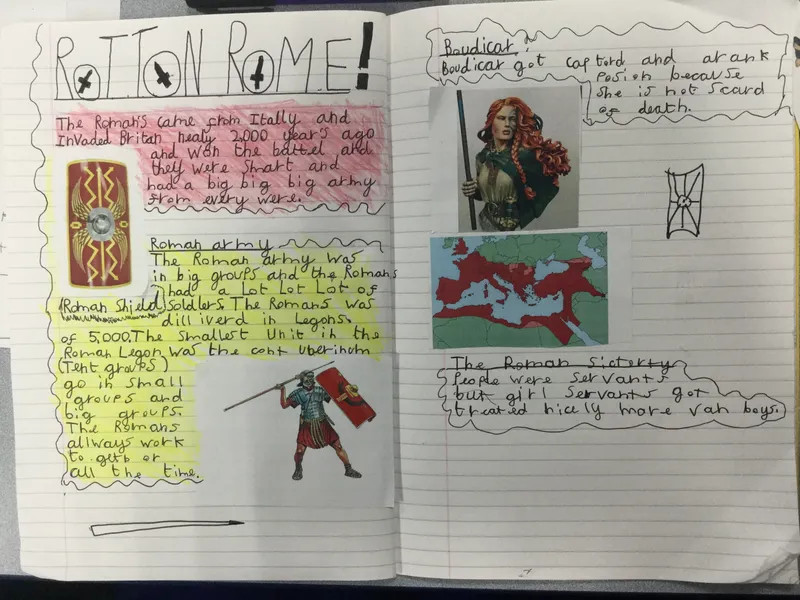 ROTTON ROME!
The Roman's came from Itally and
Invaded Britan nealy 2,000 year's ago
and won the battel and
they were Smart and
had a big big big army
from every were.
Roman army
The Roman army was
in big groups and the Romans
had a Lot Lot Lot of
(Roman Shield) Soldiers. The Romans was
dilliverd in Legons.
of 5,000. The Smallest Unit in the
Roman Legon was the cont uberinum
(Tent groups)
go in Small
groups and
big groups.
The Romans
allways work
to geth or
all the time.
Boudicar:
Boudicar got captord and drank
Posion because
She is not Scard
of death.
The Roman Sicterty
People were Servants
but girl Servants got
treated nicely more van boys.